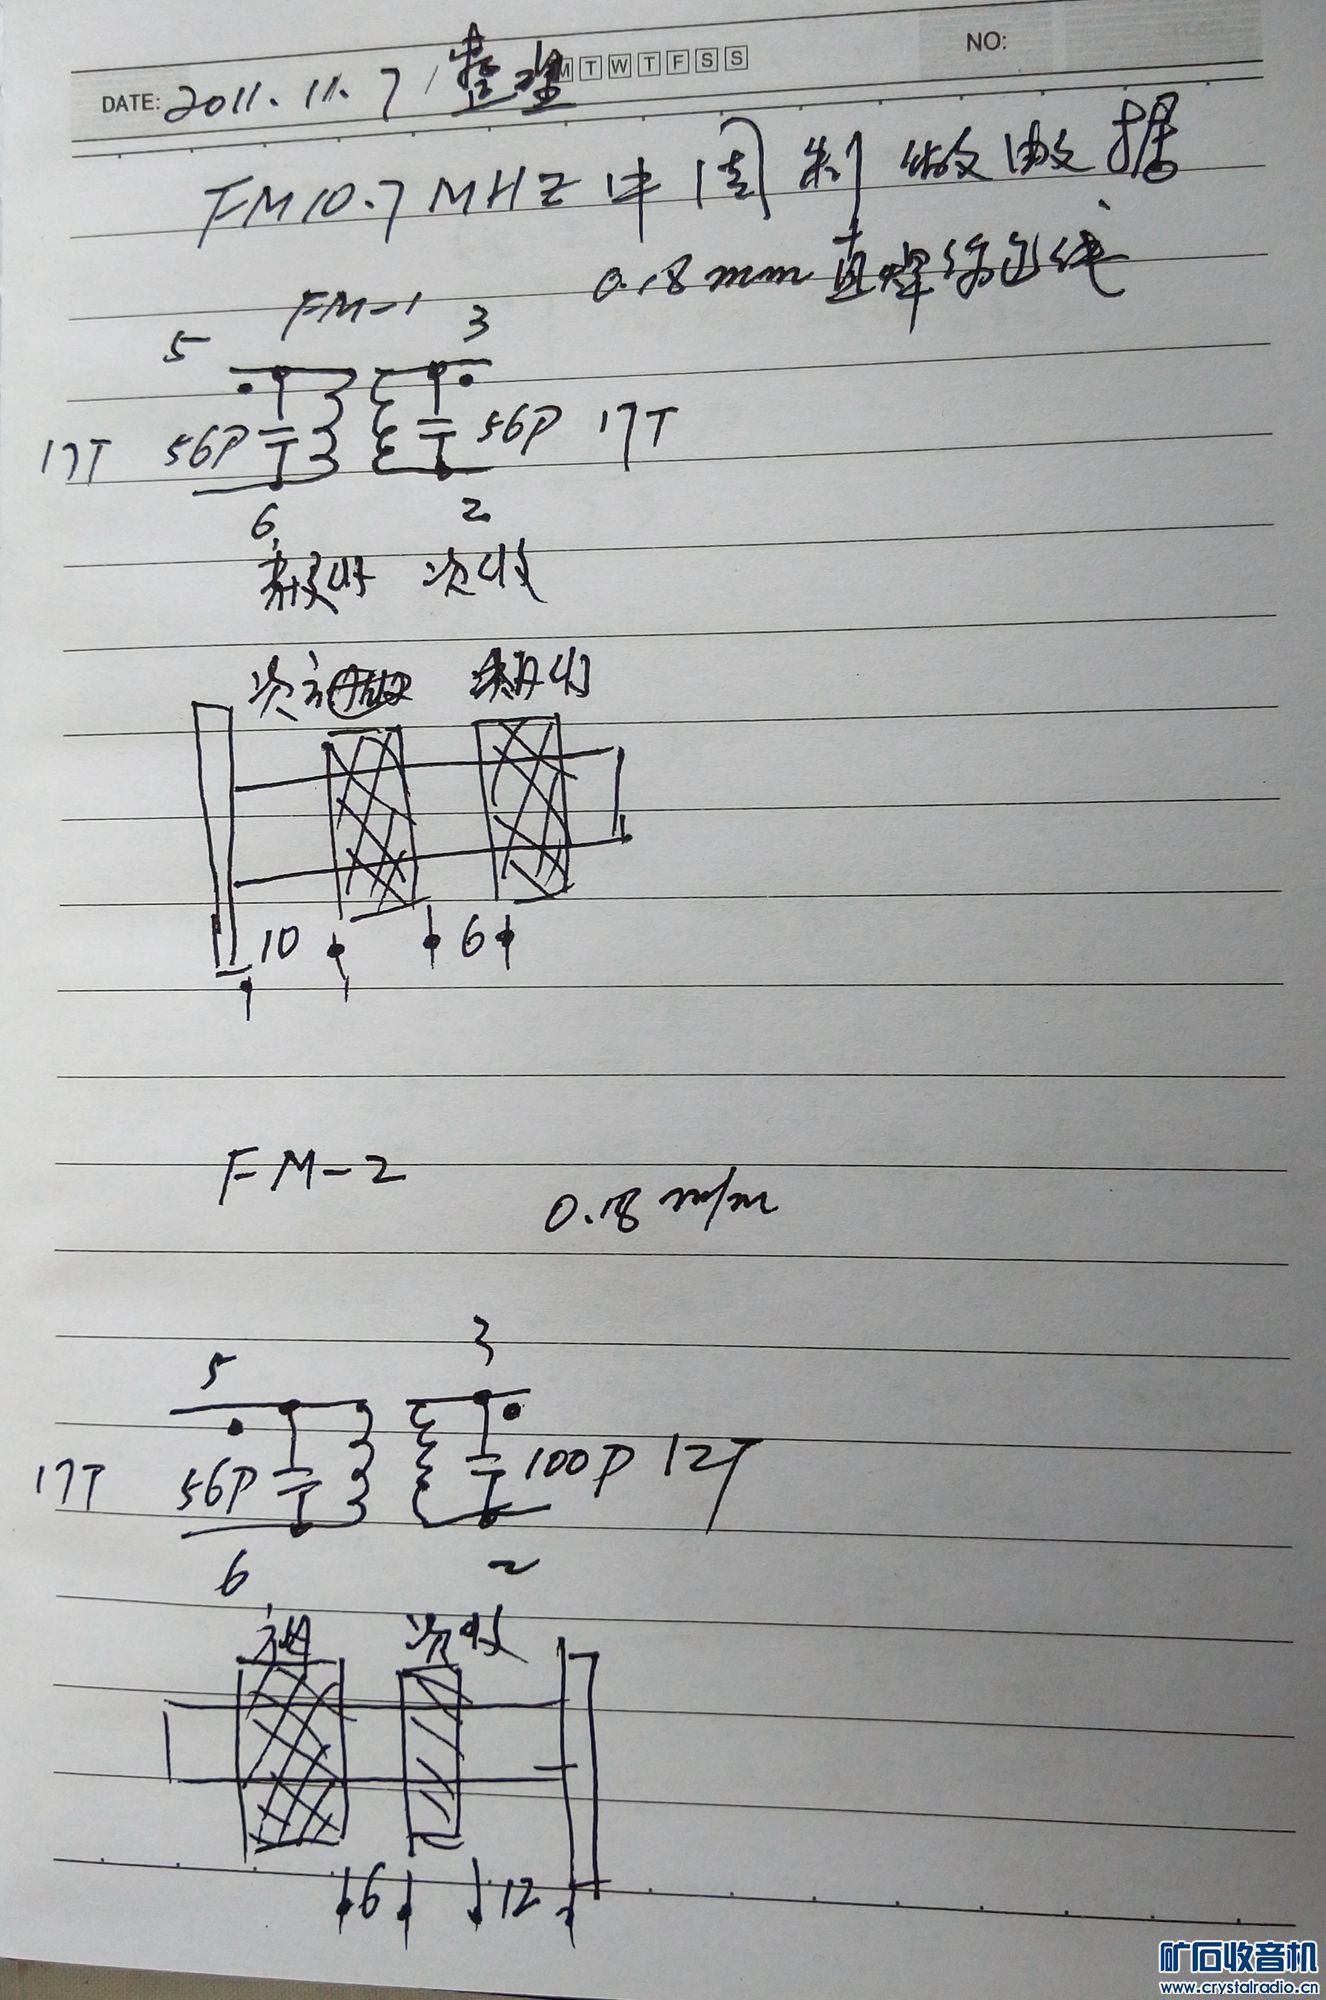 DATE: 2011.11.7 / 整理 M T W T F S S NO:
FM10.7MHZ中周制做数据
0.18mm直焊漆包线
FM-1
5 3
17T 56P 56P 17T
6 2
次级
次
10 6
FM-2
0.18 m/m
5 3
17T 56P 100P 12T
6 2
初 次级
6 12
矿石收音机
www.crystalradio.cn